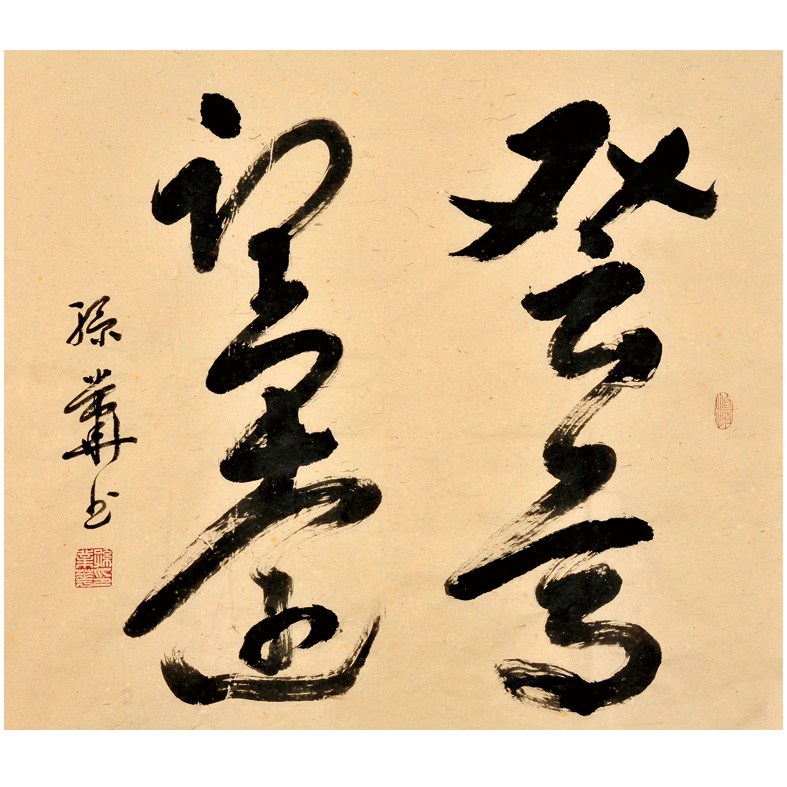 登高
望遠
孫華书